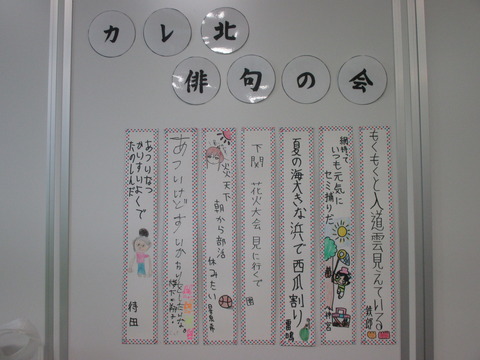 カレ北
俳句の会
もくもくと入道雲見えている
鉄郎
網持って
いつも元気に
セミ捕りだ
夏の海大きな浜で西瓜割り
下関 花火大会 見に行て
炎天下
朝から部活
休みたい
あついけどすいか
あつりなつ
かりすりよくで
たのしんだ
待田